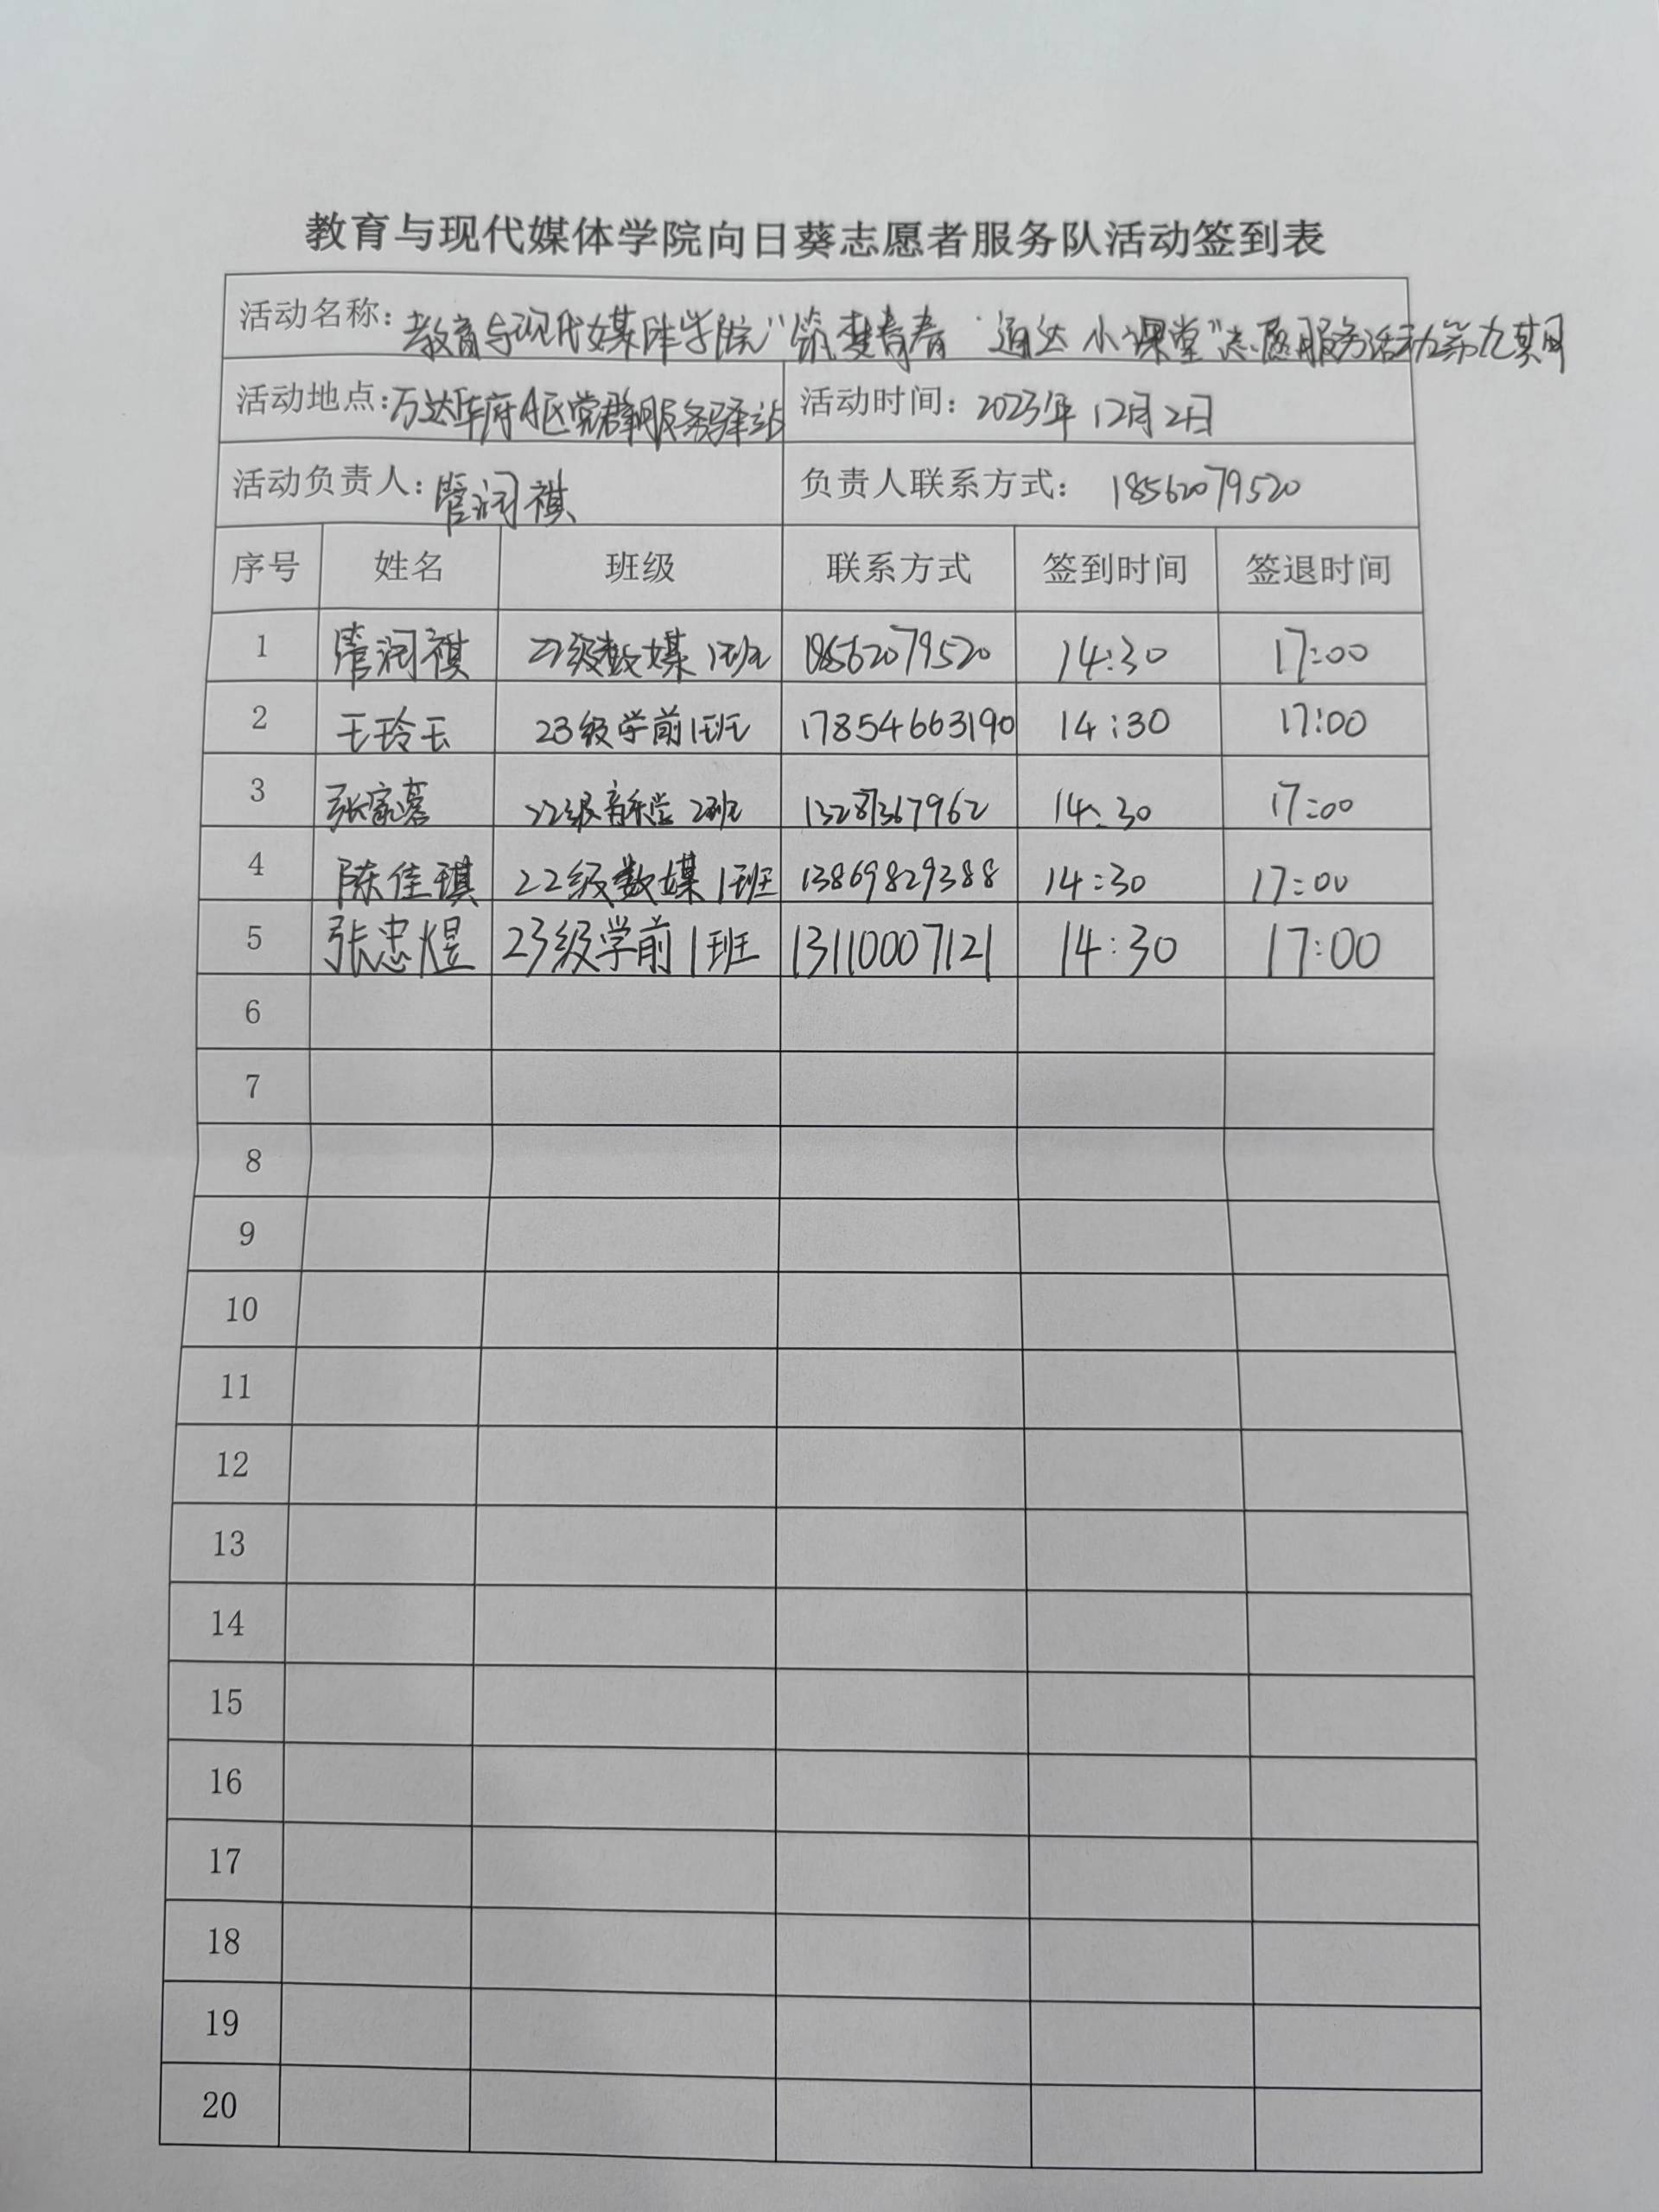 教育与现代媒体学院向日葵志愿者服务队活动签到表
活动名称：教育与现代媒体学院“筑梦青春 通达小课堂”志愿服务活动第九期
活动地点：万达华府A区党群服务驿站 活动时间：2023年12月2日
活动负责人：管润祺 负责人联系方式：18562079520
序号 姓名 班级 联系方式 签到时间 签退时间
1 管润祺 22级数媒1班 18562079520 14:30 17:00
2 王玲玉 23级学前1班 17854663190 14:30 17:00
3 张家 22级 2班 13287367962 14:30 17:00
4 陈佳琪 22级数媒1班 13869829388 14:30 17:00
5 张忠煜 23级学前1班 13110007121 14:30 17:00
6
7
8
9
10
11
12
13
14
15
16
17
18
19
20